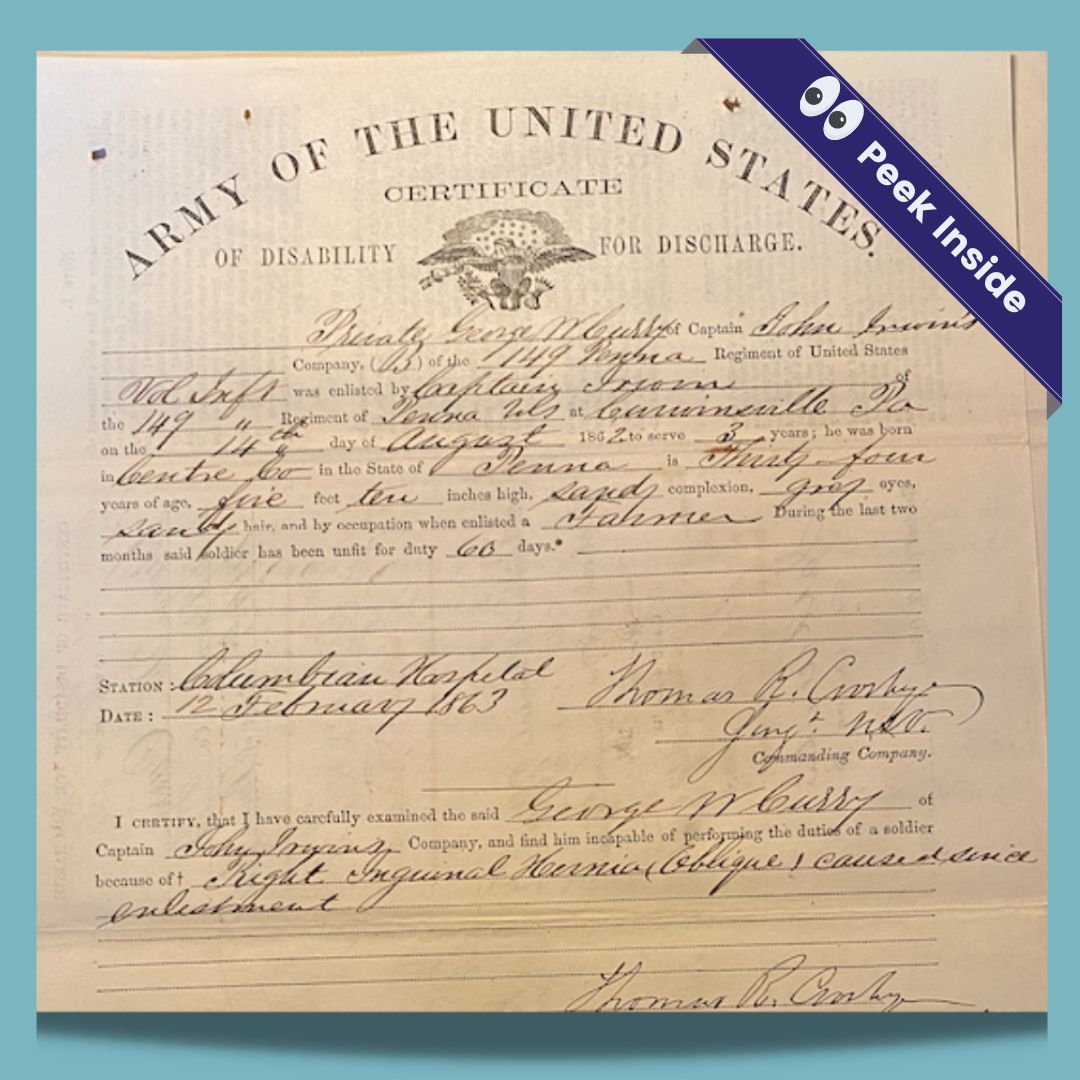 Peek Inside
ARMY OF THE UNITED STATES.
CERTIFICATE
OF DISABILITY FOR DISCHARGE.
Private George W Curry of Captain John Irwin's
Company, (B) of the 149 Penna Regiment of United States
Vol Inft was enlisted by Captain Irwin of
the 149 " Regiment of Penna Vols at Curwinsville Pa
on the 14th day of August 1862 to serve 3 years; he was born
in Centre Co in the State of Penna is Thirty-four
years of age, five feet ten inches high, sandy complexion, grey eyes,
sandy hair, and by occupation when enlisted a Farmer During the last two
months said soldier has been unfit for duty 60 days.*
STATION: Columbian Hospital
DATE: 12 February 1863
Thomas R. Crosby
Surg. U.S.V.
Commanding Company.
I CERTIFY, that I have carefully examined the said George W Curry of
Captain John Irwins Company, and find him incapable of performing the duties of a soldier
because of† Right Inguinal Hernia (Oblique) caused since
enlistment
Thomas R. Crosby